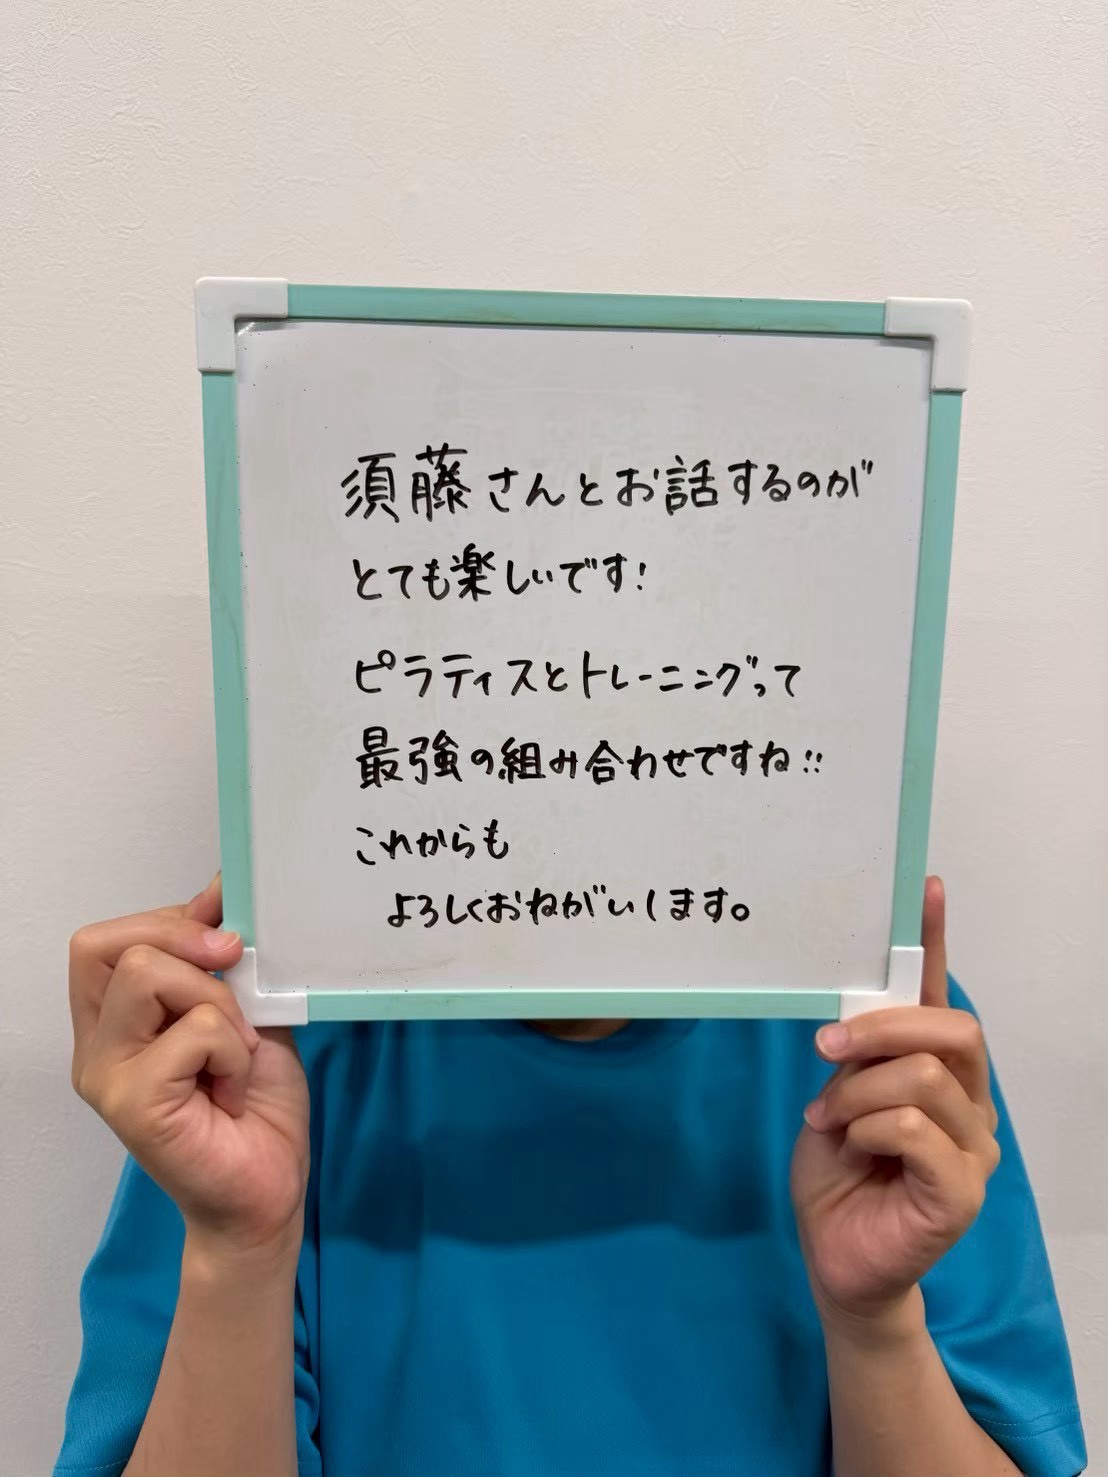 須藤さんとお話するのが
とても楽しいです!
ピラティスとトレーニングって
最強の組み合わせですね!!
これからも
よろしくおねがいします。